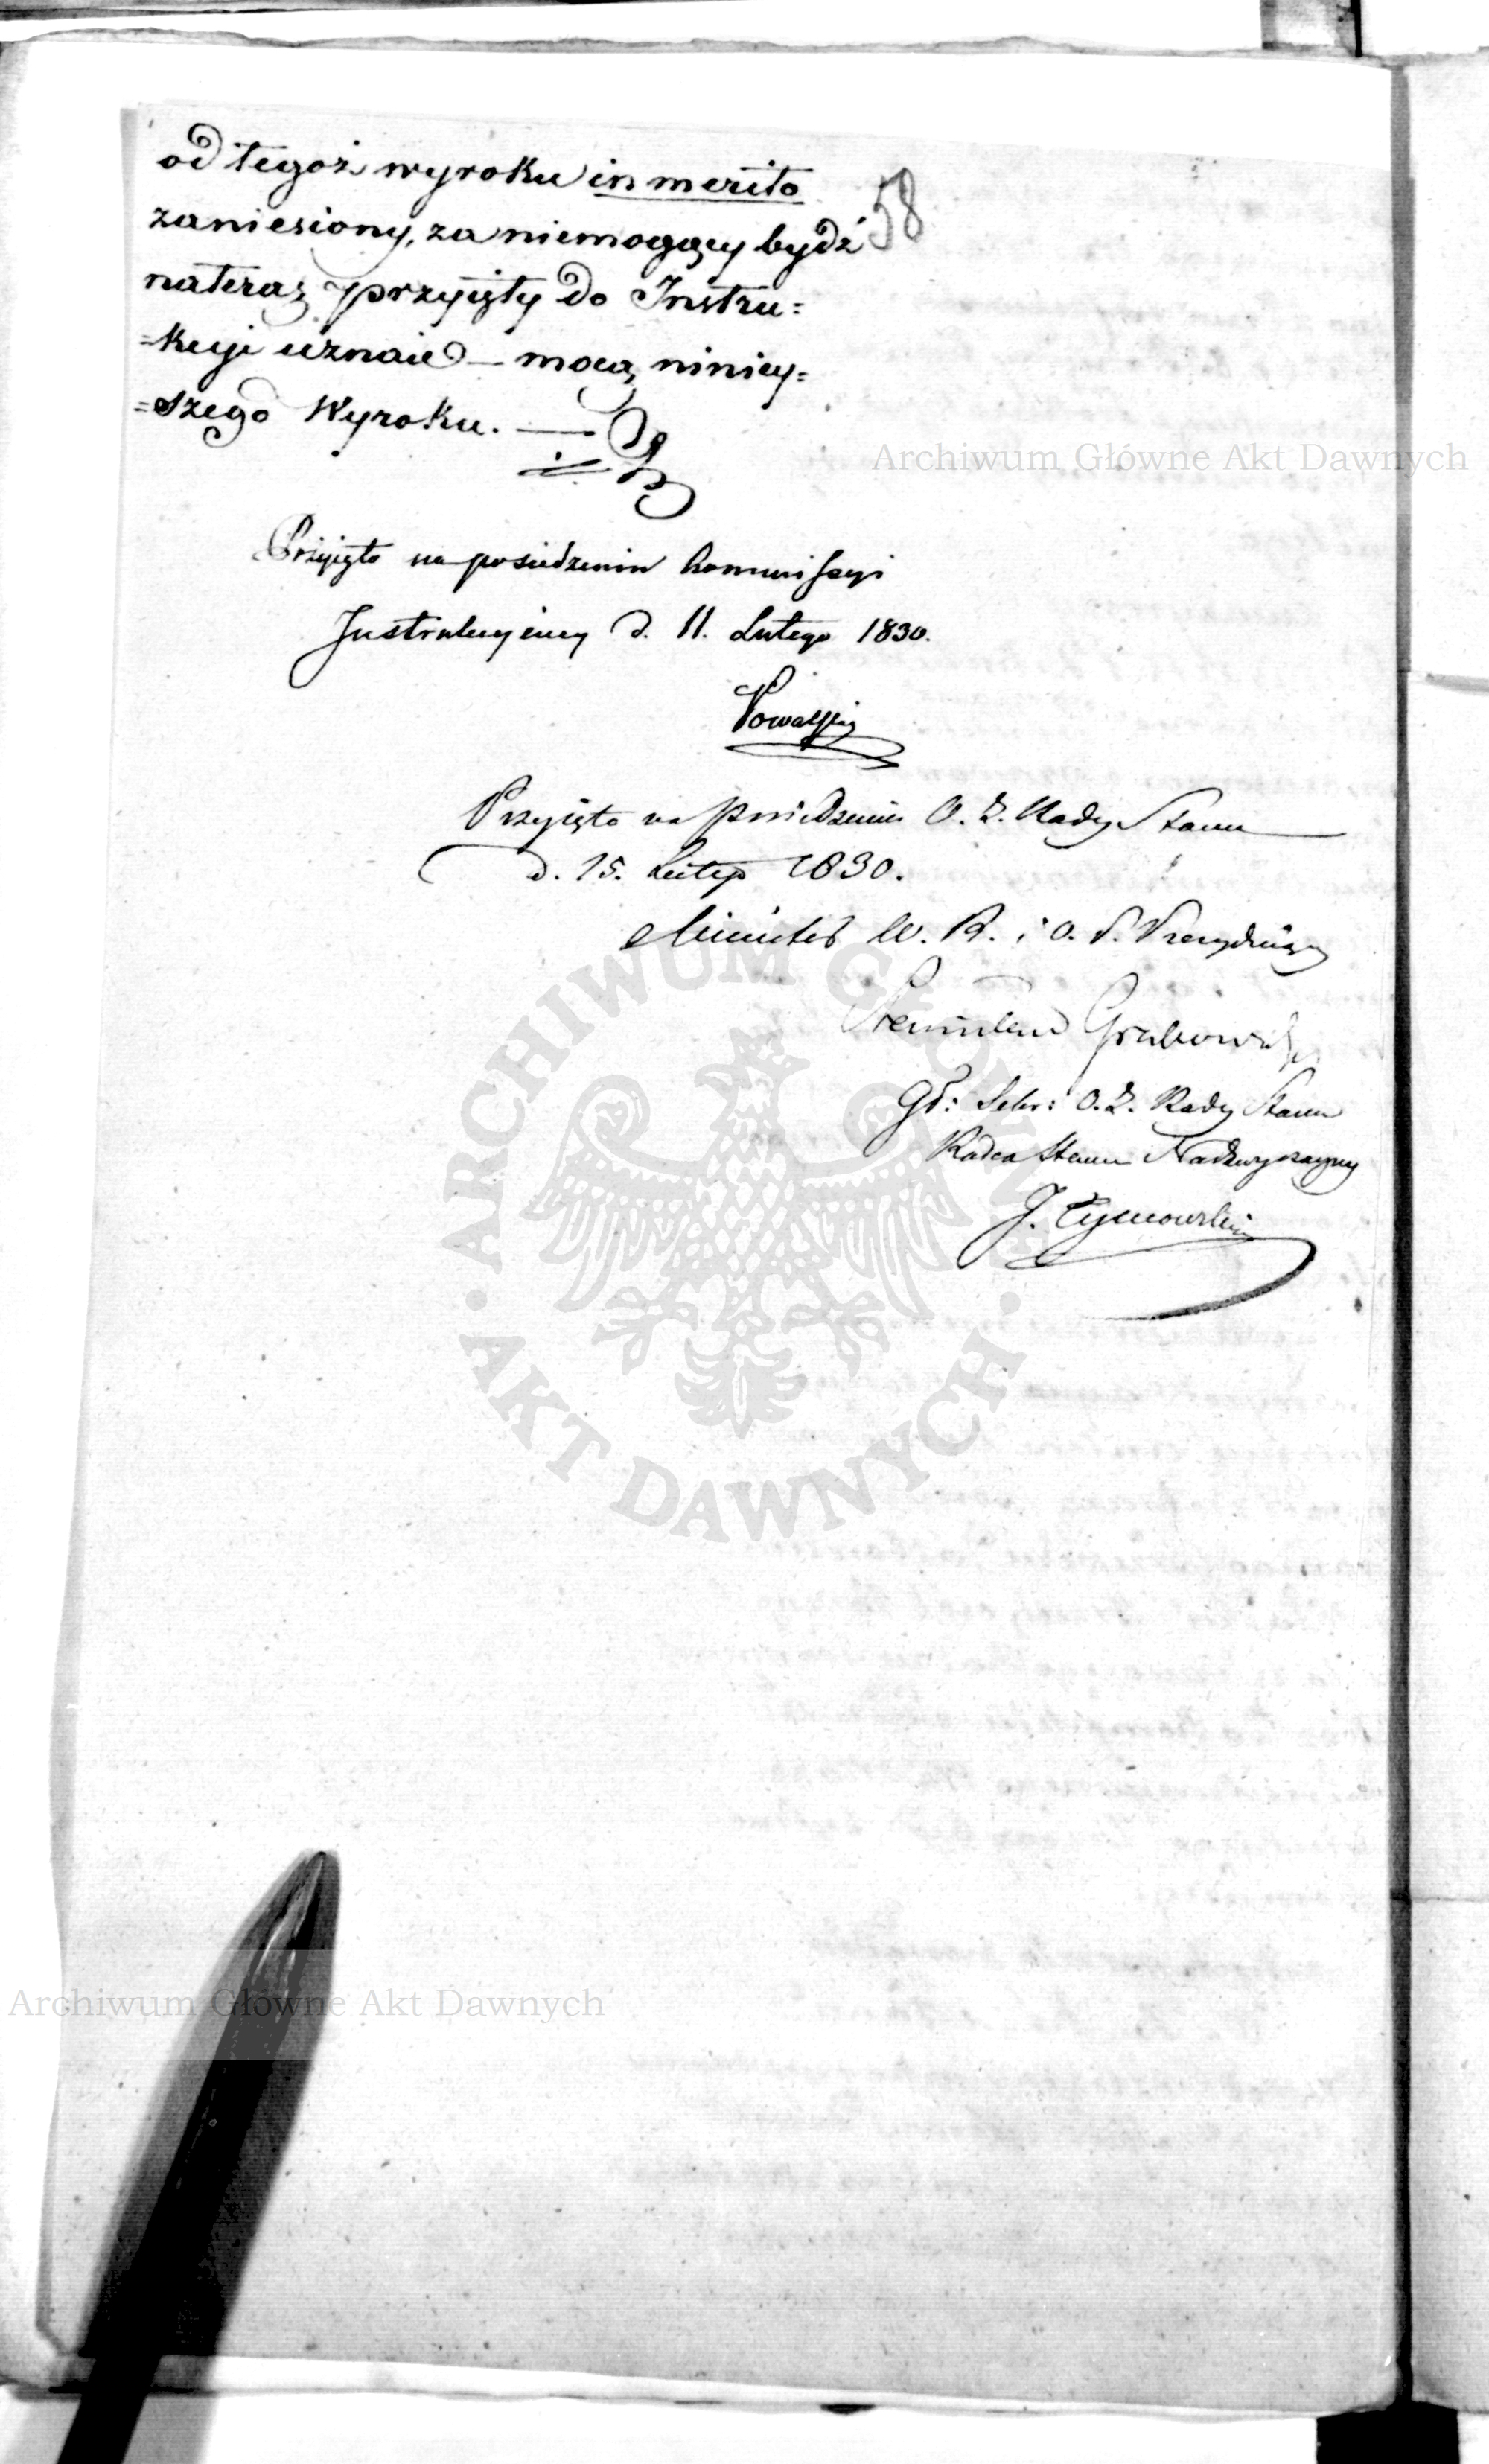 od tegoż wyroku in merito
58
zaniesiony, za niemogący bydź
nateraz przyięty do Instru=
=kcyi uznaie — mocą niniey=
=szego Wyroku. —
Przyięto na posiedzeniu Kommissyi
Instrukcyiney d. 11. Lutego 1830.
Przyięto na posiedzeniu O. Z. Rady Stanu
d. 15. Lutego 1830.
Minister W. R. i O. P. Prezyduiący
Stanisław Grabowski
Gł: Sekr: O. Z. Rady Stanu
Radca Stanu Nadzwyczayny
J. Tymowski
Archiwum Główne Akt Dawnych
ARCHIWUM GŁÓWNE
· AKT DAWNYCH ·
Archiwum Główne Akt Dawnych